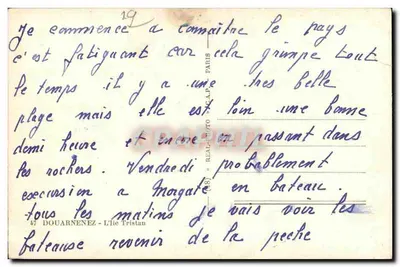 19
Je commence a connaitre le pays
c'est fatiguant car cela grimpe tout
le temps il y a une tres belle
plage mais elle est loin une bonne
demi heure et encore en passant dans
les rochers. Vendredi probablement
execursion a Morgate en bateau.
tous les matins je vais voir les
47 DOUARNENEZ - L'Ile Tristan
bateause revenir de la peche
REAL-PHOTO C.A.P. PARIS